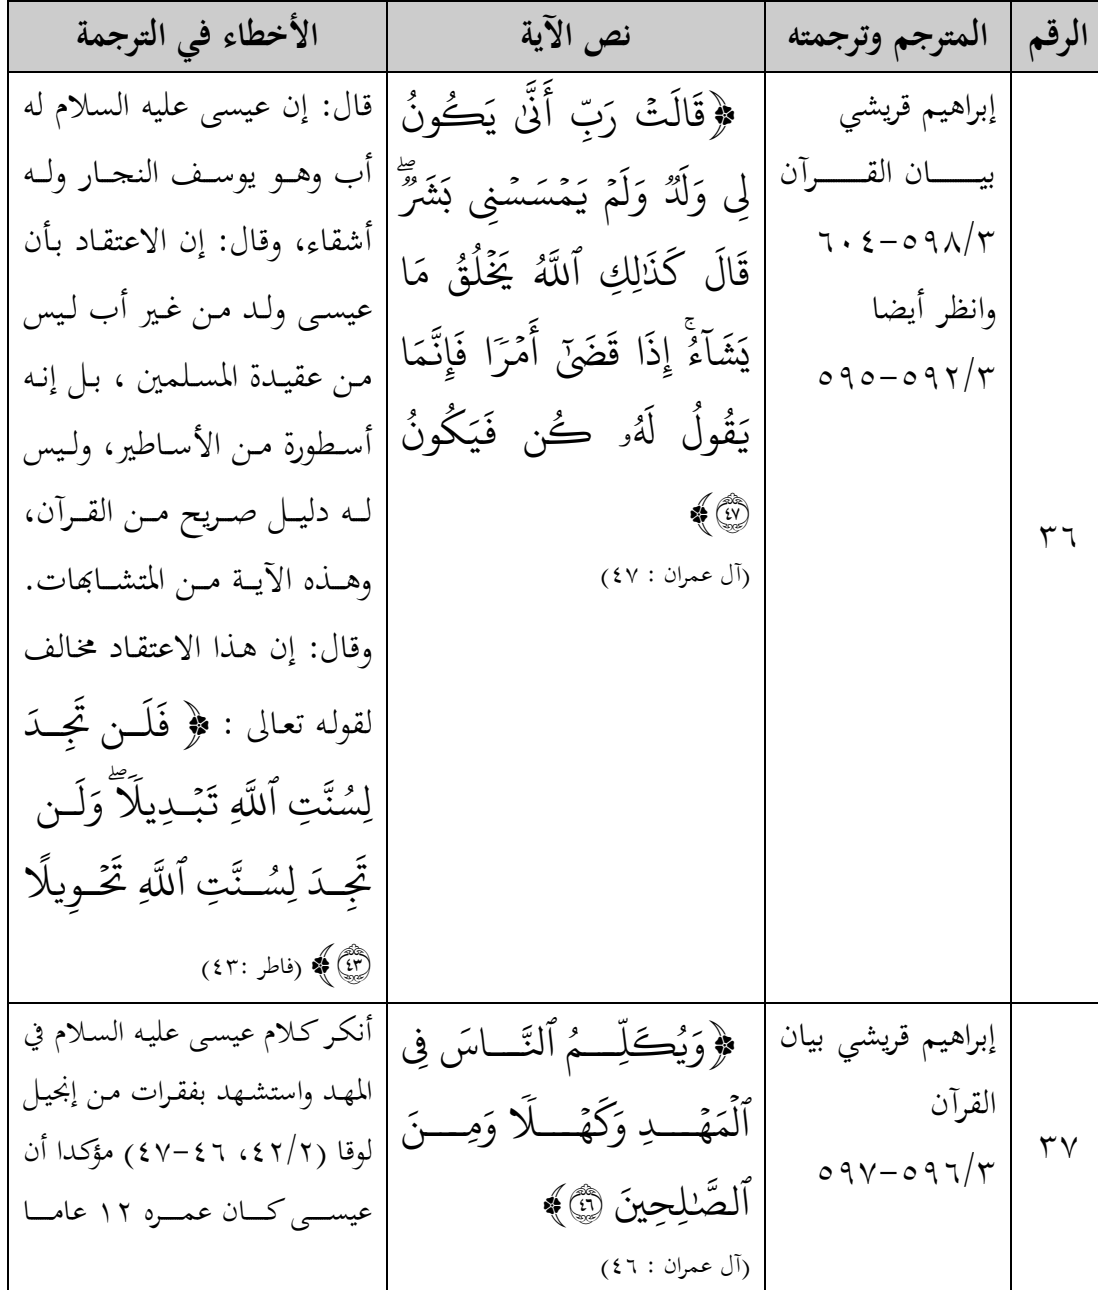 الرقم
المترجم وترجمته
نص الآية
الأخطاء في الترجمة
٣٦
إبراهيم قريشي
بيـــــان القــــــرآن
٥٩٨/٣–٦٠٤
وانظر أيضا
٥٩٢/٣–٥٩٥
﴿قَالَتۡ رَبِّ أَنَّىٰ يَكُونُ
لِي وَلَدٞ وَلَمۡ يَمۡسَسۡنِي بَشَرٞۖ
قَالَ كَذَٰلِكِ ٱللَّهُ يَخۡلُقُ مَا
يَشَآءُۚ إِذَا قَضَىٰٓ أَمۡرٗا فَإِنَّمَا
يَقُولُ لَهُۥ كُن فَيَكُونُ
٤٧﴾
(آل عمران : ٤٧)
قال: إن عيسى عليه السلام له
أب وهو يوسف النجار وله
أشقاء، وقال: إن الاعتقاد بأن
عيسى ولد من غير أب ليس
من عقيدة المسلمين ، بل إنه
أسطورة من الأساطير، وليس
له دليل صريح من القرآن،
وهذه الآية من المتشابهات.
وقال: إن هذا الاعتقاد مخالف
لقوله تعالى : ﴿ فَلَن تَجِدَ
لِسُنَّتِ ٱللَّهِ تَبۡدِيلٗاۖ وَلَن
تَجِدَ لِسُنَّتِ ٱللَّهِ تَحۡوِيلًا
٤٣﴾ (فاطر :٤٣)
٣٧
إبراهيم قريشي بيان
القرآن
٥٩٦/٣–٥٩٧
﴿وَيُكَلِّمُ ٱلنَّاسَ فِي
ٱلۡمَهۡدِ وَكَهۡلٗا وَمِنَ
ٱلصَّٰلِحِينَ ٤٦﴾
(آل عمران : ٤٦)
أنكر كلام عيسى عليه السلام في
المهد واستشهد بفقرات من إنجيل
لوقا (٤٢/٢، ٤٦–٤٧) مؤكدا أن
عيسى كان عمره ١٢ عاما